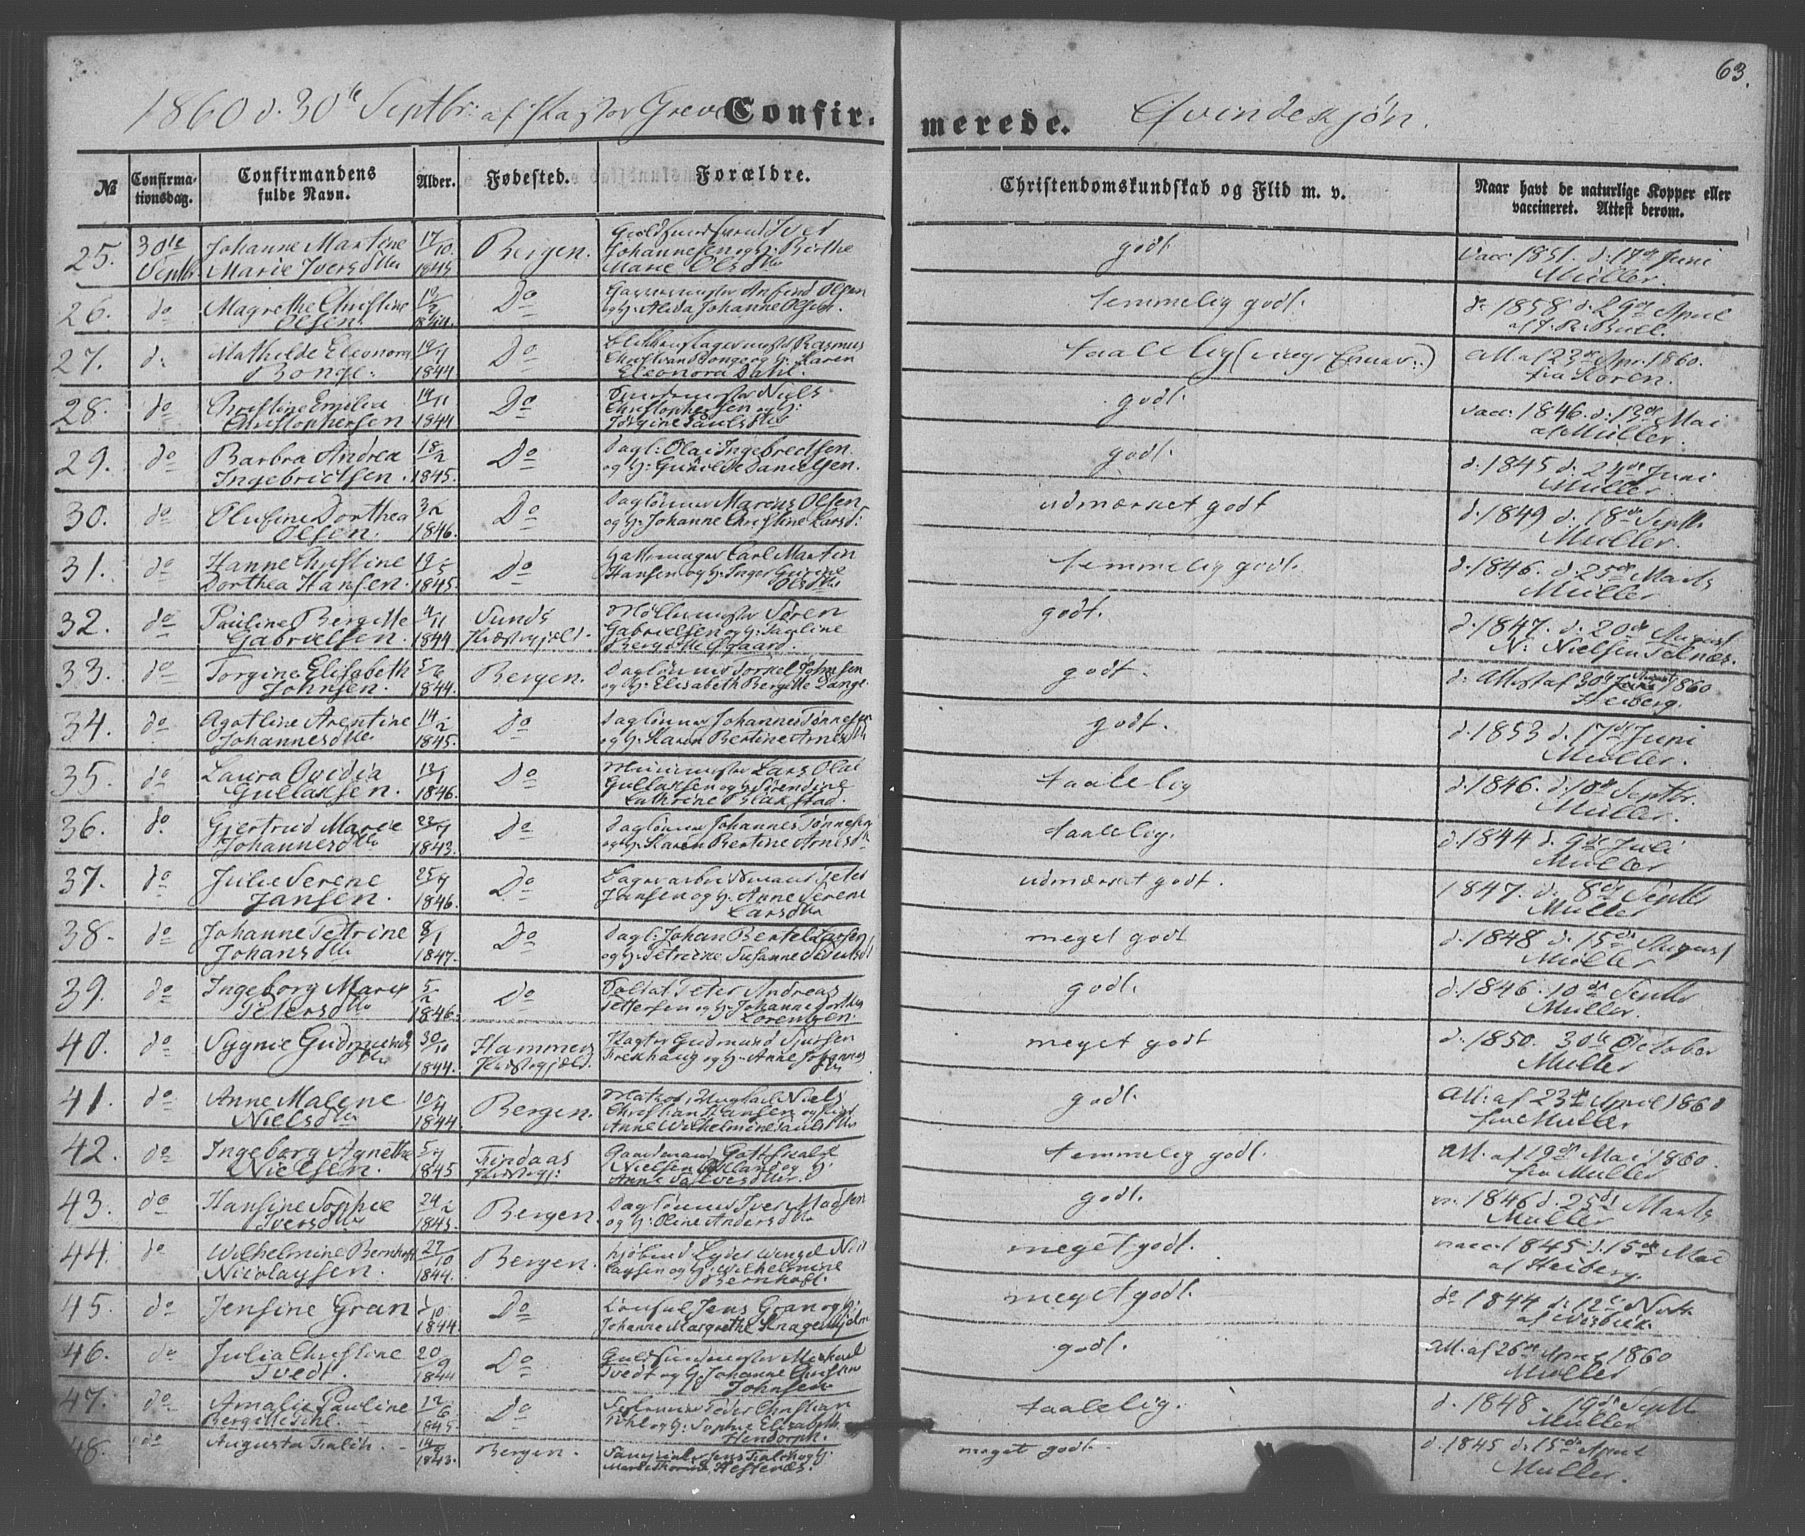 63.
1860 d. 30te Septbr. af Pastor Greve Confir- merede. Qvindekjøn.
№ Confirmationsdag. Confirmandens fulde Navn. Alder. Fødested. Forældre. Christendomskundskab og Flid m. v. Naar havt de naturlige Kopper eller vaccineret. Attest derom.
25. 30te Septbr. Johanne Martine Marie Iversdtr 17/10 1845 Bergen. Iver Johannesen og H: Birthe Marie Olsdtr godt Vacc. 1851. d. 17de Juni Müller.
26. do Magrethe Christine Olsen. 1844. Do Anfind Olsen og H: Alida Johanne Olsen. temmelig godt. do 1858 d. 29de April af J. R. Bull.
27. do Mathilde Eleonora Bonge. 1844 Do Rasmus Christian Bonge og H: Karen Eleonora Dahl. taalelig Att. af 23de Apr. 1860. fra Koren.
28. do Christine Emilia Christophersen 14/11 1844 Do Niels Christophersen og H: Jørgine Paulsdtr godt. Vacc. 1846. d. 13de Mai af Müller.
29. do Barbra Andrea Ingebrictsen. 18/2 1845. Do Dagl: Olai Ingebrectsen og H: Danielsen. godt. d. 1845 d. 24de Juni Müller.
30. do Olufine Dorthea Olsen. 3/2 1846. Do Daglønner Marcus Olsen og H: Johanne Christine Larsd: udmærket godt d. 1849 d. 18de Septbr Müller.
31. do Hanne Christine Dorthea Hansen. 19/5 1845. Do Carl Martin Hansen og H: Inger Olsdtr temmelig godt. d. 1846. d. 25de Marts Müller
32. do Pauline Bergitte Gabrielsen. 4/11 1844 Sunds Præstegjæld. Møllemester Søren Gabrielsen og H: Pauline Bergitte godt. d. 1847. d. 20de August N. Nielsen Telnæs.
33. do Torgine Elisabeth Johnsen. 1844. Bergen. Daglønner Torkel Johnsen og H: Elisabeth Bergitte Lange. godt. d. Attest af 30te August 1860 Heiberg.
34. do Agatline Arentine Johannesdtr 14/2 1845. Do Daglønner Johannes Tønnesen og H: Karen Bertine Arnesdtr godt. d. 1853 d. 17de Juni Müller.
35. do Laura Ovidia Gullaksen. 1846. Do Murmester Lars Olai Gullaksen og H: Sørendine Cathrine Blakstad. taalelig d. 1846. d. 18de Septbr. Müller.
36. do Gjertrud Marie Johannesdtr 1843. Do Daglønner Johannes Tønnesen og H: Karen Bertine Arnesdtr taalelig. d. 1844 d. 9de Juli Müller
37. do Julie Serene Jansen. 1846. Do Peter Jansen og H: Anne Serene Larsdtr udmærket godt. 1847. d. 8de Septbr Müller
38. do Johanne Petrine Johansdtr 8/1 1847. Do Dagl: Johan Bertel Larsen og H: Petrine Susanne meget godt d. 1848 d. 15de August Müller
39. do Ingeborg Marie Petersdtr 5/2 1846. Do Soldat Peter Andreas Pettersen og H: Johanne Dorthea Lorentzen. godt. d. 1846. 10de Septbr Müller.
40. do Sygnie Gudmundsdtr 30/11 1844. Hammers Præstegjæld. Gudmund Sjursen og H: Anne meget godt d. 1850. 30te October Müller
41. do Anne Malene Nielsdtr 1844. Bergen. Niels Christian Hansen og Anne Wilhelmine Paulsdtr godt. Att. af 23de April 1860 fra Müller
42. do Ingeborg Agnethe Nielsen. 1845 Findaas Præstegj: Gaardmand Gottfried Nielsen og H: Anne temmelig godt. Att. af 19de Mai 1860. fra Müller
43. do Hansine Sophie Iversdtr 24/2 1845. Bergen. Daglønner Iver Madsen og H: Oline Andersdtr godt. 1846 d. 25de Marts Müller
44. do Wilhelmine Bernhoft Nicolaysen. 27/10 1844. Bergen. Lyder Wensel Nicolaysen og H: Wilhelmine Bernhoft. meget godt. vacc. 1845 d. 15de Mai af Heiberg.
45. do Jensine Gran 1844. Do Consul Jens Gran og H: Johanne Margrethe meget godt. do 1844 d. 12te Novbr
46. do Julia Christine Tvedt. 20/9 1844 Do Michael Tvedt og H: Johanne Christine Johnsen godt. Att. af 26de April 1860 Müller
47. do Amalie Pauline Bergitte Pihl. 12/6 1845 Do Peder Christian Pihl og H: Sophie Elisabeth Hendorph. taalelig. d. 1848. 19de Septbr Müller.
48. do Augusta Falch. 1843. Bergen. Jens Falch og H: meget godt d. 1845 d. 15de April Müller.